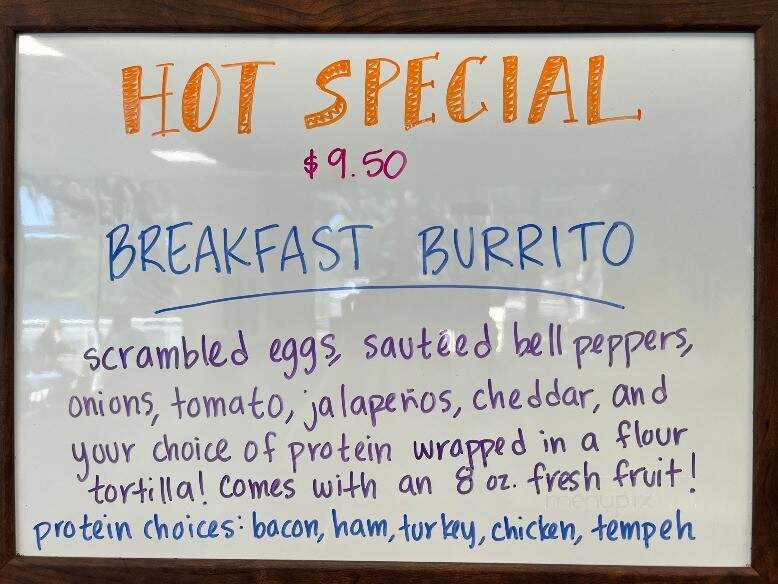 HOT SPECIAL
$9.50
BREAKFAST BURRITO
scrambled eggs, sautéed bell peppers,
onions, tomato, jalapeños, cheddar, and
your choice of protein wrapped in a flour
tortilla! Comes with an 8 oz. fresh fruit!
protein choices: bacon, ham, turkey, chicken, tempeh